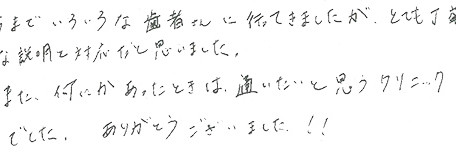 まで いろいろな歯者さんに行ってきましたが、とても丁寧
な説明と対応だと思いました。
また、何にかあったときは、通いたいと思うクリニック
でした。 ありがとうございました!!